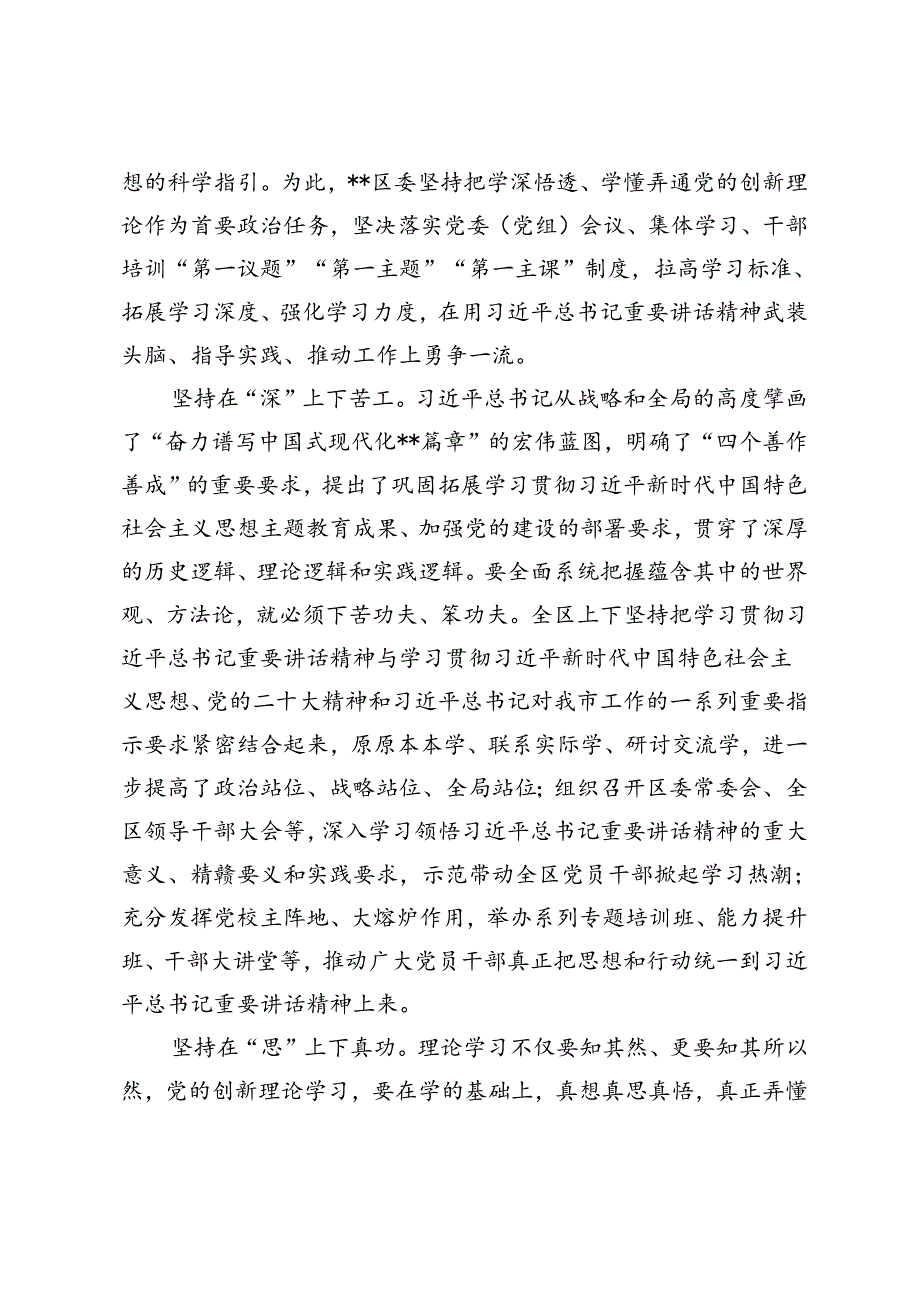 想的科学指引。为此，**区委坚持把学深悟透、学懂弄通党的创新理
论作为首要政治任务，坚决落实党委（党组）会议、集体学习、干部
培训“第一议题”“第一主题”“第一主课”制度，拉高学习标准、
拓展学习深度、强化学习力度，在用习近平总书记重要讲话精神武装
头脑、指导实践、推动工作上勇争一流。
坚持在“深”上下苦工。习近平总书记从战略和全局的高度擘画
了“奋力谱写中国式现代化**篇章”的宏伟蓝图，明确了“四个善作
善成”的重要要求，提出了巩固拓展学习贯彻习近平新时代中国特色
社会主义思想主题教育成果、加强党的建设的部署要求，贯穿了深厚
的历史逻辑、理论逻辑和实践逻辑。要全面系统把握蕴含其中的世界
观、方法论，就必须下苦功夫、笨功夫。全区上下坚持把学习贯彻习
近平总书记重要讲话精神与学习贯彻习近平新时代中国特色社会主
义思想、党的二十大精神和习近平总书记对我市工作的一系列重要指
示要求紧密结合起来，原原本本学、联系实际学、研讨交流学，进一
步提高了政治站位、战略站位、全局站位；组织召开区委常委会、全
区领导干部大会等，深入学习领悟习近平总书记重要讲话精神的重大
意义、精赣要义和实践要求，示范带动全区党员干部掀起学习热潮；
充分发挥党校主阵地、大熔炉作用，举办系列专题培训班、能力提升
班、干部大讲堂等，推动广大党员干部真正把思想和行动统一到习近
平总书记重要讲话精神上来。
坚持在“思”上下真功。理论学习不仅要知其然、更要知其所以
然，党的创新理论学习，要在学的基础上，真想真思真悟，真正弄懂